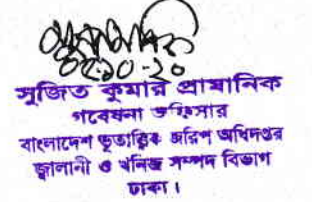 ০৫-১০-২০
সুজিত কুমার প্রামানিক
গবেষনা অফিসার
বাংলাদেশ ভূতাত্ত্বিক জরিপ অধিদপ্তর
জ্বালানী ও খনিজ সম্পদ বিভাগ
ঢাকা।